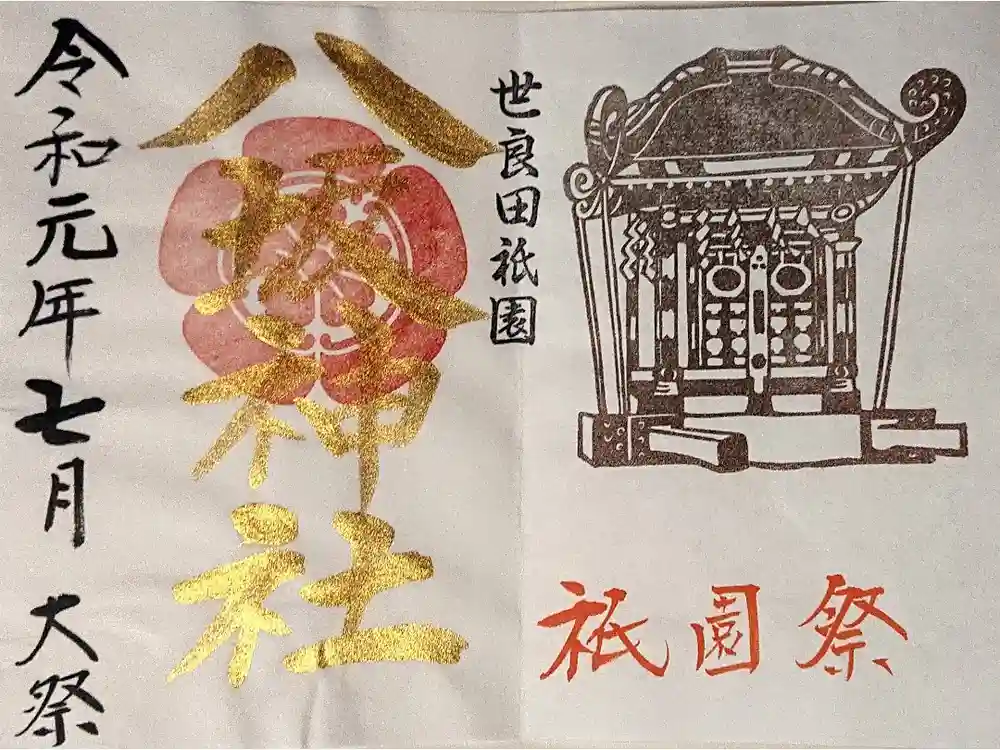 祇園祭
世良田祇園
八坂神社
令和元年七月 大祭